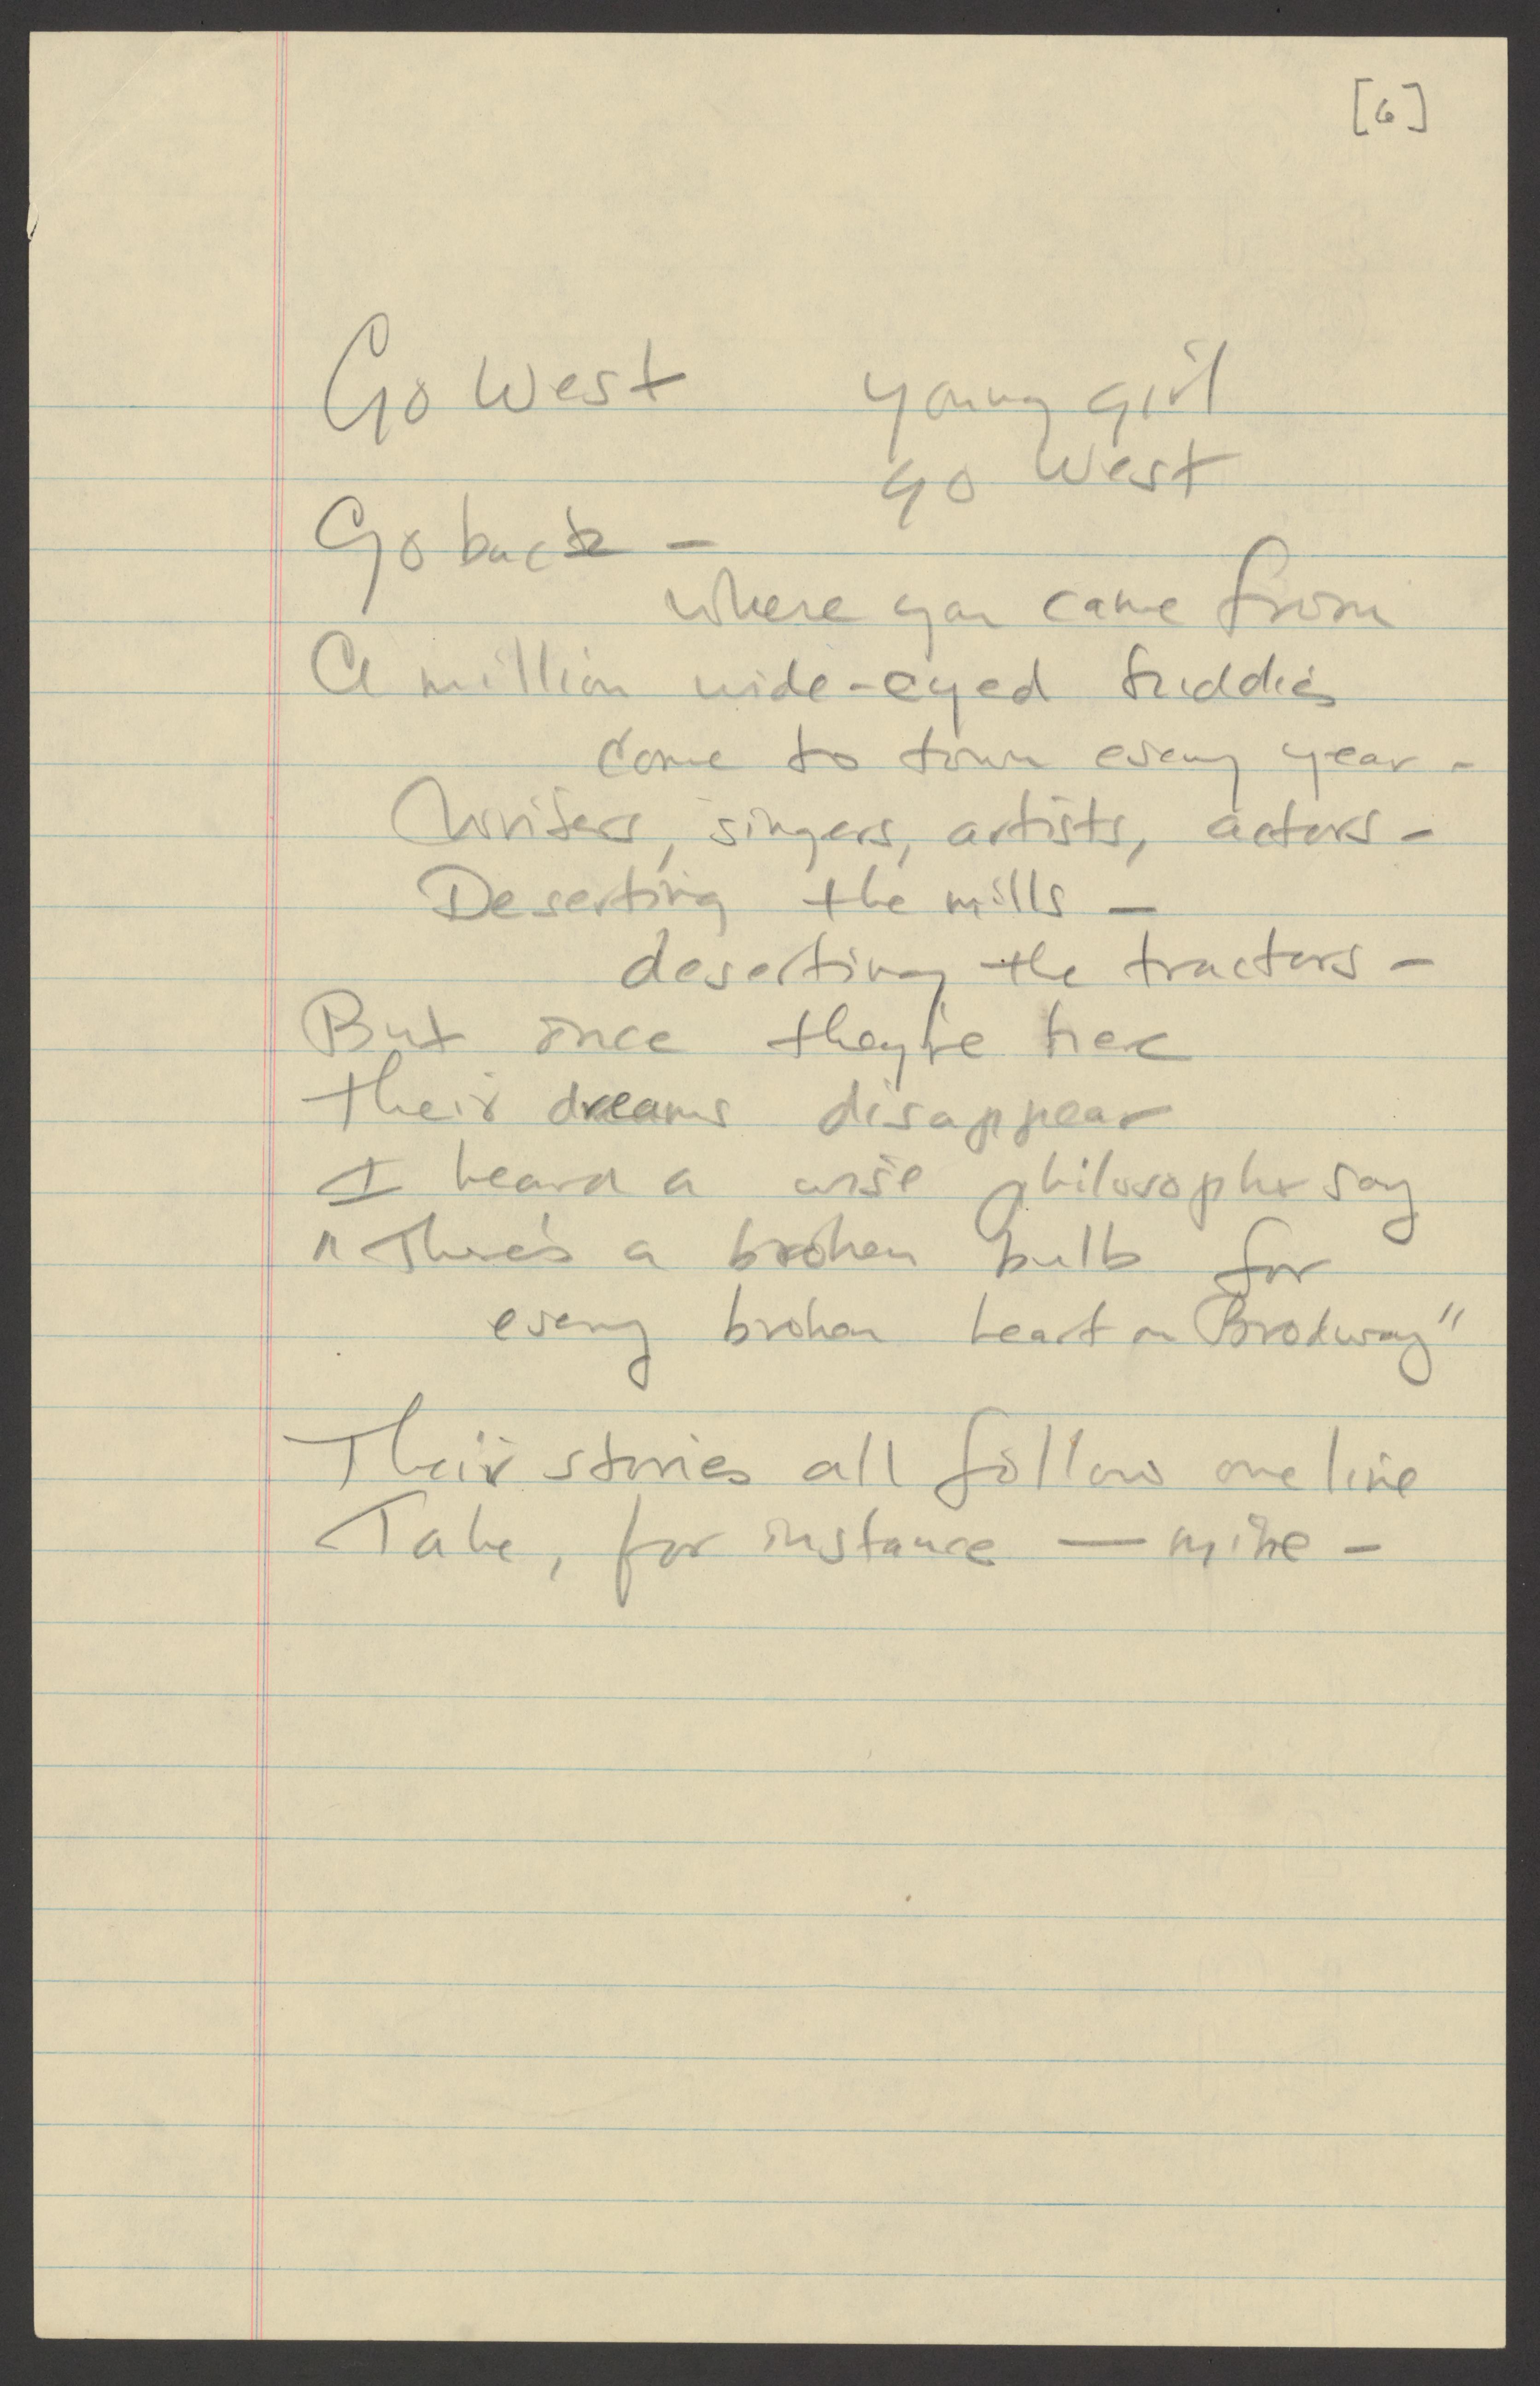 [6]
Go West young girl
go West
Go back –
where you came from
A million wide-eyed
come to town every year –
Writers, singers, artists, actors –
Deserting the mills –
deserting the tractors –
But once they're here
their dreams disappear
I heard a wise philosopher say
"There's a broken bulb for
every broken heart on Brodway"
Their stories all follow one line
Take, for instance — mine –